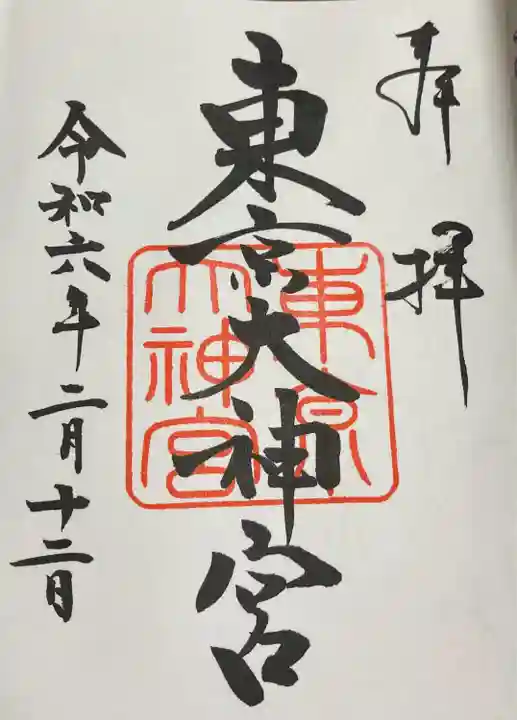 奉拝
東京大神宮
東京
大神宮
令和六年二月十二日